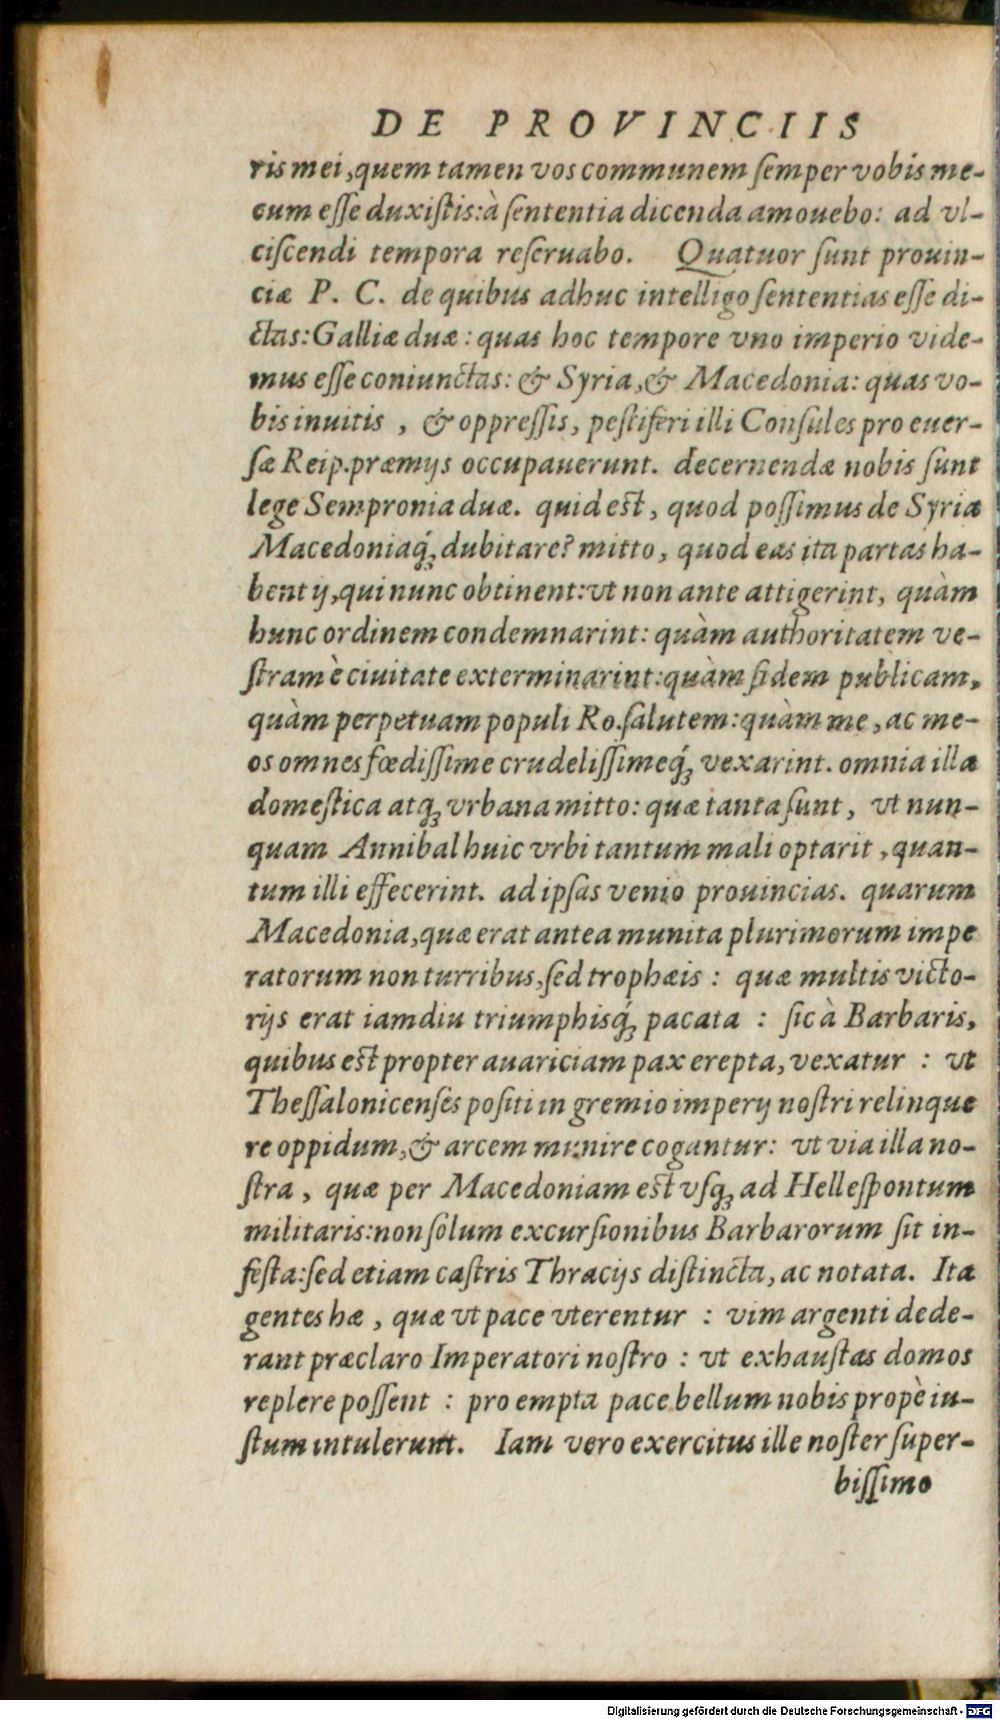 DE PROVINCIIS
ris mei, quem tamen vos communem ſemper vobis me-
cum eſſe duxiſtis: à ſententia dicenda amouebo: ad vl-
ciſcendi tempora reſeruabo. Quatuor ſunt prouin-
ciæ P. C. de quibus adhuc intelligo ſententias eſſe di-
ctas: Galliæ duæ: quas hoc tempore vno imperio vide-
mus eſſe coniunctas: & Syria, & Macedonia: quas vo-
bis inuitis, & oppreſſis, peſtiferi illi Conſules pro euer-
ſæ Reip. præmijs occupauerunt. decernendæ nobis ſunt
lege Sempronia duæ. quid eſt, quod poſſimus de Syria
Macedoniaq́; dubitare? mitto, quod eas ita partas ha-
bent ij, qui nunc obtinent: vt non ante attigerint, quàm
hunc ordinem condemnarint: quàm authoritatem ve-
ſtram è ciuitate exterminarint: quàm fidem publicam,
quàm perpetuam populi Ro. ſalutem: quàm me, ac me-
os omnes fœdiſſime crudeliſſimeq́; vexarint. omnia illa
domeſtica atq; vrbana mitto: quæ tanta ſunt, vt nun-
quam Annibal huic vrbi tantum mali optarit, quan-
tum illi effecerint. ad ipſas venio prouincias. quarum
Macedonia, quæ erat antea munita plurimorum impe
ratorum non turribus, ſed trophæis: quæ multis victo-
rijs erat iamdiu triumphisq́; pacata: ſic à Barbaris,
quibus eſt propter auariciam pax erepta, vexatur: vt
Theſſalonicenſes poſiti in gremio imperij noſtri relinque
re oppidum, & arcem munire cogantur: vt via illa no-
ſtra, quæ per Macedoniam eſt vſq; ad Helleſpontum
militaris: non ſolum excurſionibus Barbarorum ſit in-
feſta: ſed etiam caſtris Thracijs diſtincta, ac notata. Ita
gentes hæ, quæ vt pace vterentur: vim argenti dede-
rant præclaro Imperatori noſtro: vt exhauſtas domos
replere poſſent: pro empta pace bellum nobis propè iu-
ſtum intulerunt. Iam vero exercitus ille noſter ſuper-
biſſimo
Digitalisierung gefördert durch die Deutsche Forschungsgemeinschaft - DFG